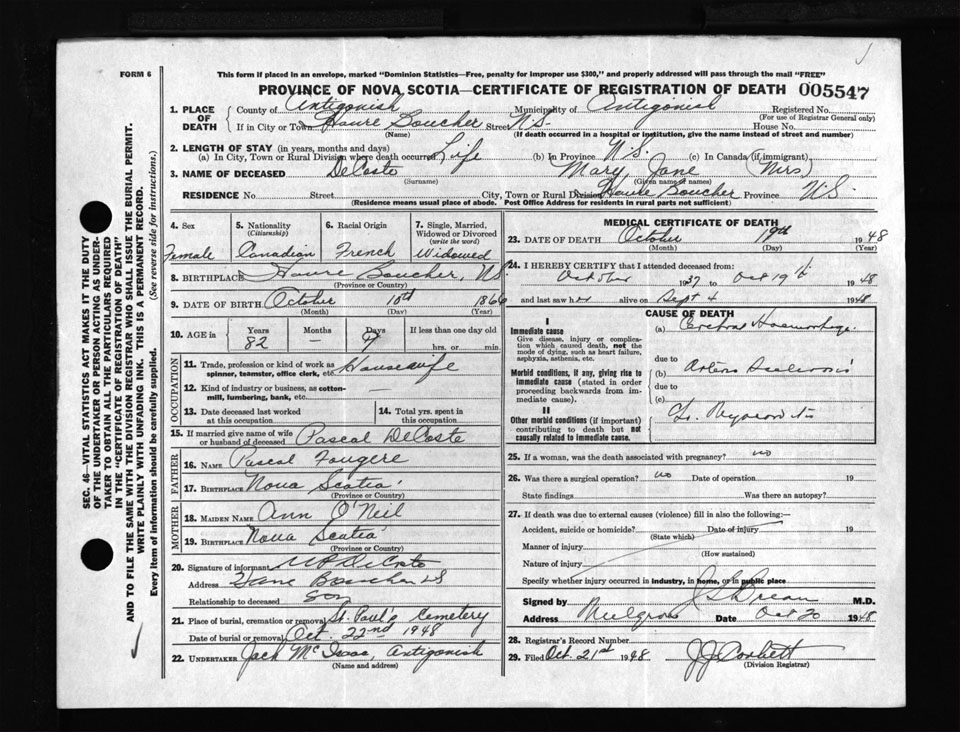 FORM 6
This form if placed in an envelope, marked "Dominion Statistics—Free, penalty for improper use $300," and properly addressed will pass through the mail "FREE"
PROVINCE OF NOVA SCOTIA—CERTIFICATE OF REGISTRATION OF DEATH 005547
1. PLACE OF DEATH
County of Antigonish Municipality of Antigonish Registered No.
(For use of Registrar General only)
If in City or Town Havre Boucher Street N.S. House No.
(Name) (If death occurred in a hospital or institution, give the name instead of street and number)
2. LENGTH OF STAY (in years, months and days)
(a) In City, Town or Rural Division where death occurred Life (b) In Province N.S. (c) In Canada (if immigrant)
3. NAME OF DECEASED DeCoste Mary Jane (Mrs)
(Surname) (Given name or names)
RESIDENCE No. Street City, Town or Rural Division Havre Boucher Province N.S.
(Residence means usual place of abode. Post Office Address for residents in rural parts not sufficient)
4. Sex Female
5. Nationality (Citizenship) Canadian
6. Racial Origin French
7. Single, Married, Widowed or Divorced (write the word) Widowed
8. BIRTHPLACE Havre Boucher, N.S.
(Province or Country)
9. DATE OF BIRTH October 10th 1866
(Month) (Day) (Year)
10. AGE in Years 82 Months — Days 9 If less than one day old hrs. or min.
OCCUPATION
11. Trade, profession or kind of work as spinner, teamster, office clerk, etc. Housewife
12. Kind of industry or business, as cotton-mill, lumbering, bank, etc. —
13. Date deceased last worked at this occupation
14. Total yrs. spent in this occupation
15. If married give name of wife or husband of deceased Pascal DeCoste
FATHER
16. NAME Pascal Fougere
17. BIRTHPLACE Nova Scotia
(Province or Country)
MOTHER
18. MAIDEN NAME Ann O'Neil
19. BIRTHPLACE Nova Scotia
(Province or Country)
20. Signature of informant DeCoste
Address
Relationship to deceased Son
21. Place of burial, cremation or removal St. Paul's Cemetery
Date of burial or removal Oct. 22nd 1948
22. UNDERTAKER Jack McIsaac, Antigonish
(Name and address)
MEDICAL CERTIFICATE OF DEATH
23. DATE OF DEATH October 19th 1948
(Month) (Day) (Year)
24. I HEREBY CERTIFY that I attended deceased from:
October 1937 to Oct 19th 1948
and last saw her alive on Sept 4 1948
CAUSE OF DEATH
I
Immediate cause
Give disease, injury or complication which caused death, not the mode of dying, such as heart failure, asphyxia, asthenia, etc.
(a) Cerebral Haemorrhage
due to
Morbid conditions, if any, giving rise to immediate cause (stated in order proceeding backwards from immediate cause).
(b) Arterio Sclerosis
due to
(c)
II
Other morbid conditions (if important) contributing to death but not causally related to immediate cause.
25. If a woman, was the death associated with pregnancy? no
26. Was there a surgical operation? no Date of operation 19
State findings Was there an autopsy?
27. If death was due to external causes (violence) fill in also the following:
Accident, suicide or homicide? Date of injury 19
(State which)
Manner of injury
(How sustained)
Nature of injury
Specify whether injury occurred in industry, in home, or in public place
Signed by M.D.
Address Date Oct 20 1948
28. Registrar's Record Number
29. Filed Oct. 21st 1948 J J Corbett
(Division Registrar)
SEC. 46—VITAL STATISTICS ACT MAKES IT THE DUTY
OF THE UNDERTAKER OR PERSON ACTING AS UNDER-
TAKER TO OBTAIN ALL THE PARTICULARS REQUIRED
IN THE "CERTIFICATE OF REGISTRATION OF DEATH"
AND TO FILE THE SAME WITH THE DIVISION REGISTRAR WHO SHALL ISSUE THE BURIAL PERMIT.
WRITE PLAINLY WITH UNFADING INK. THIS IS A PERMANENT RECORD.
Every item of information should be carefully supplied. (See reverse side for instructions.)